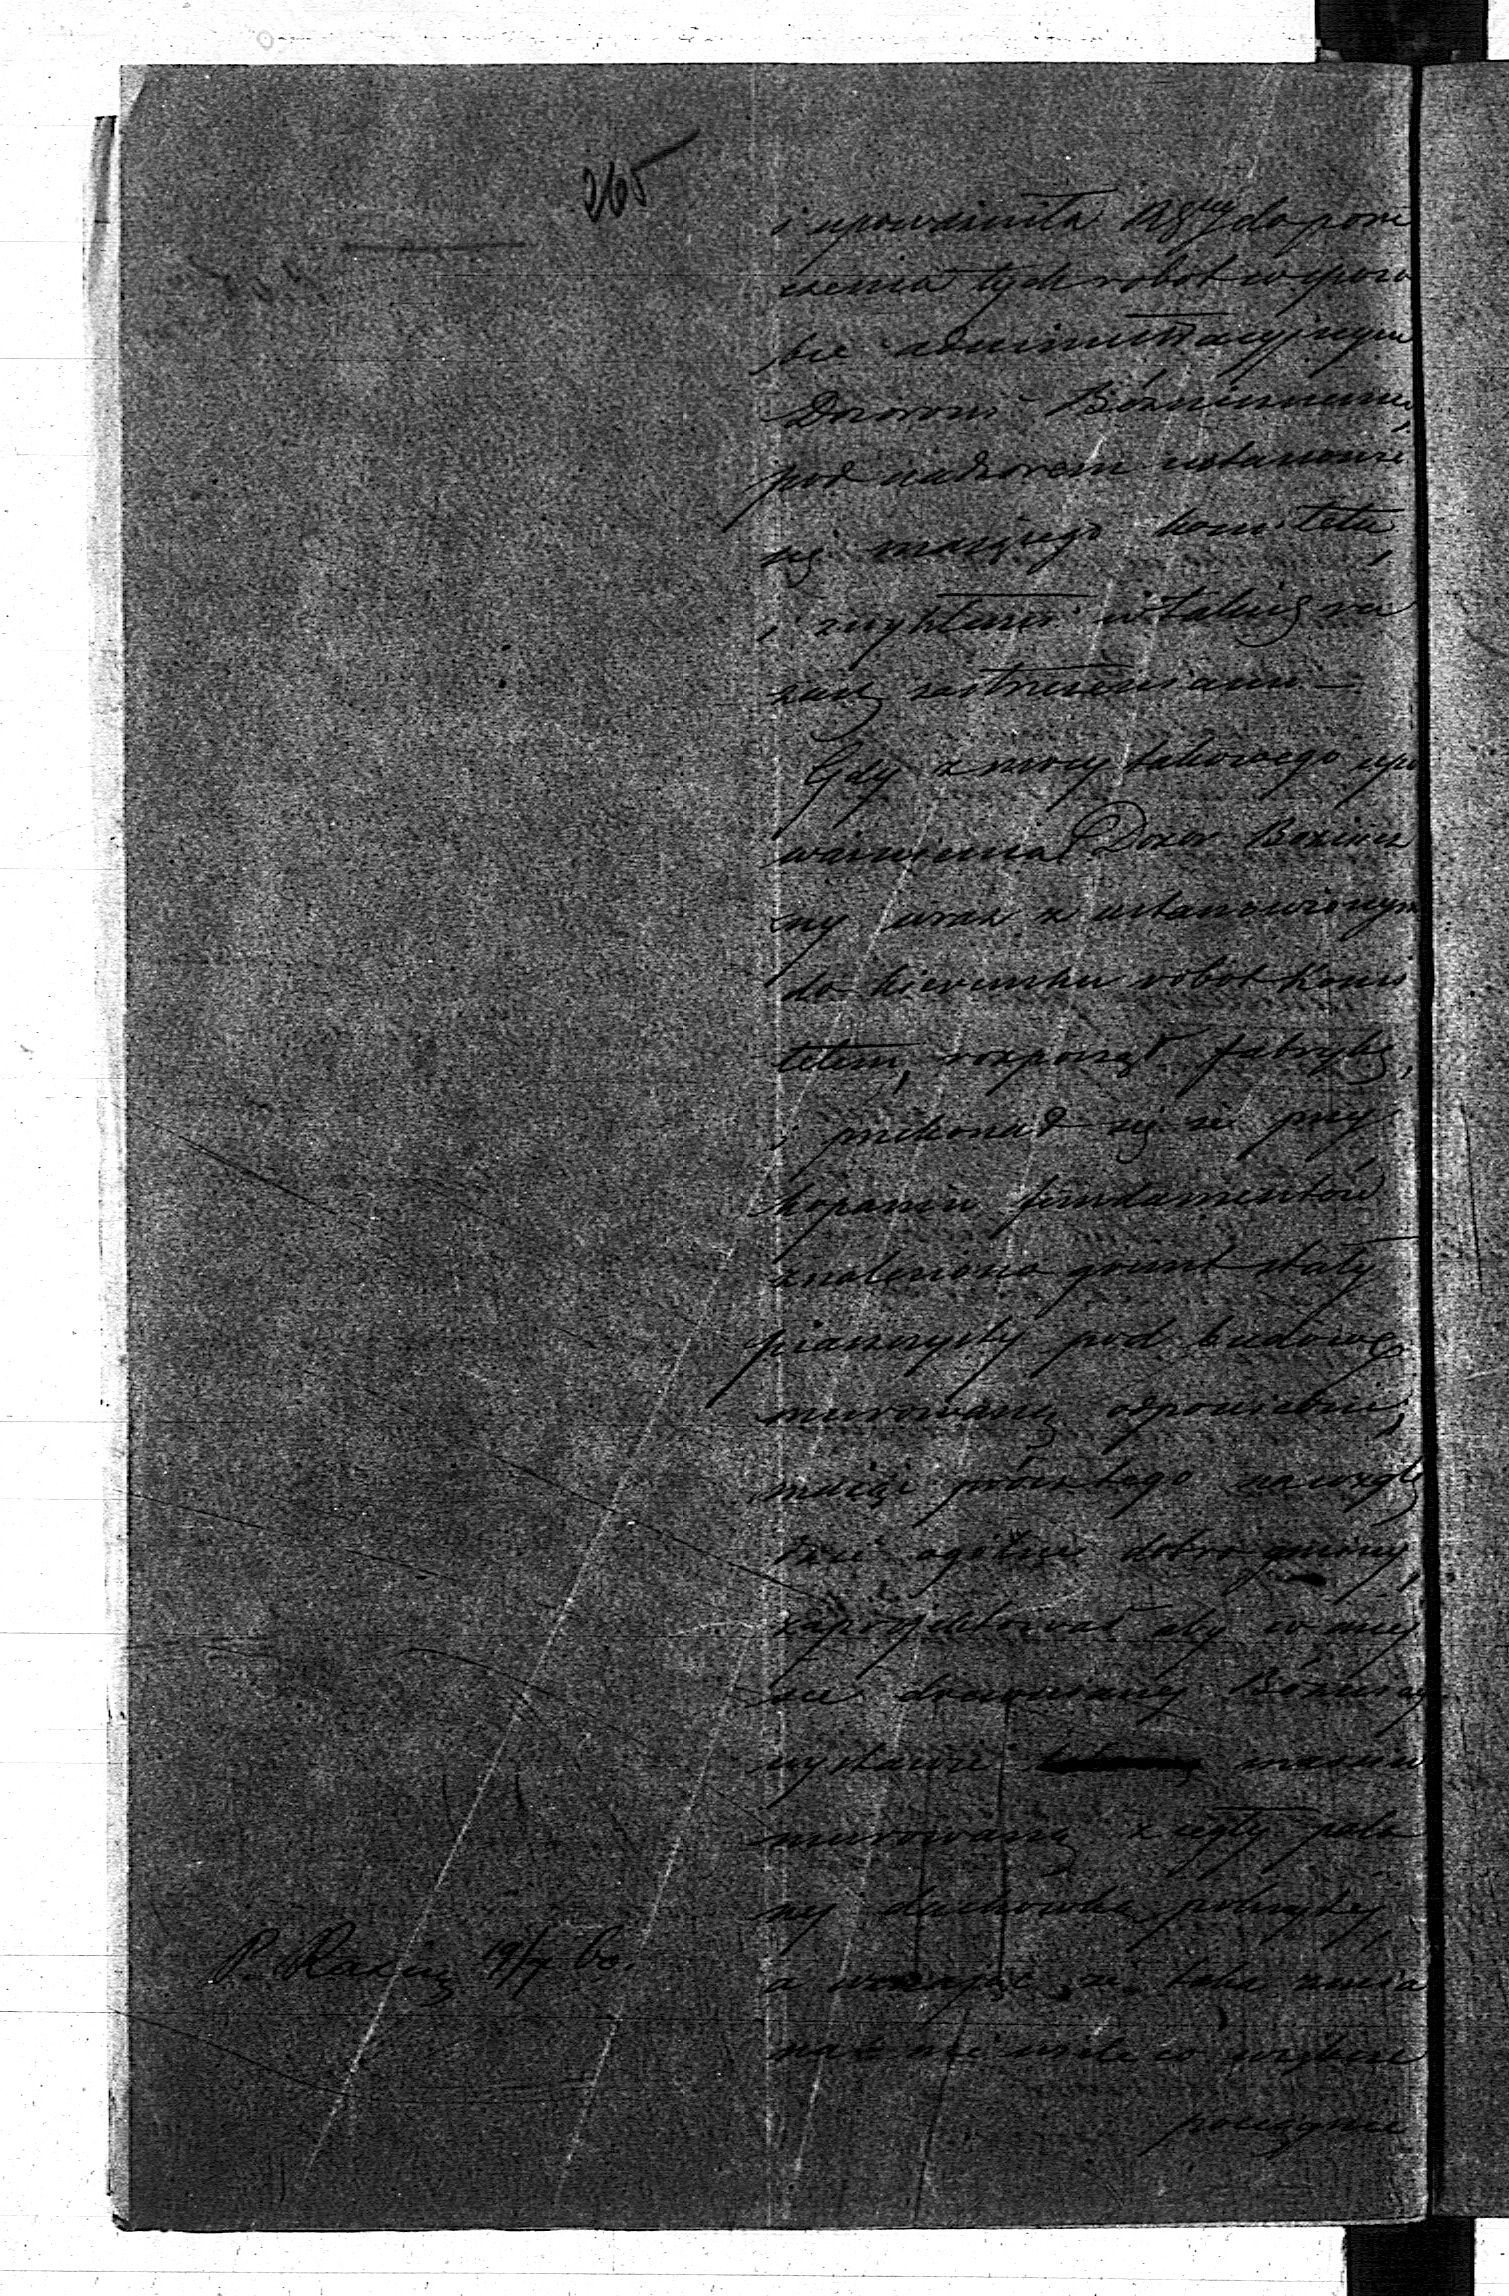 265
i upoważniła Rząd do poru
czenia tych robót w sposo
bie administracyjnym
Dozorowi Bóżniczemu,
pod nadzorem ustanowić
się mającego komitetu,
i zwykłemi w takiej ra
zach zastrzeżeniami —
Gdy z mocy takowego upo
ważnienia Dozor Bożnicz
ny wraz z ustanowionym
do kierunku robot Komi
tetem, rozpoczął fabrykę,
i przekonał się że przy
kopaniu fundamentów
znaleziono grunt stały
piaszczysty pod budowę
murowaną odpowiedni,
mając prócz tego na wzglę
dzie ogólne dobro gminy,
zaprojektował aby w miej
sce drewnianej Bóżnicy
wystawić massiw
murowaną z cegły palo
nej dachówką pokrytej,
a uważając że taka zmia
na nie wiele w wydatku
pociągnie
P. Radzię 19/7 60.